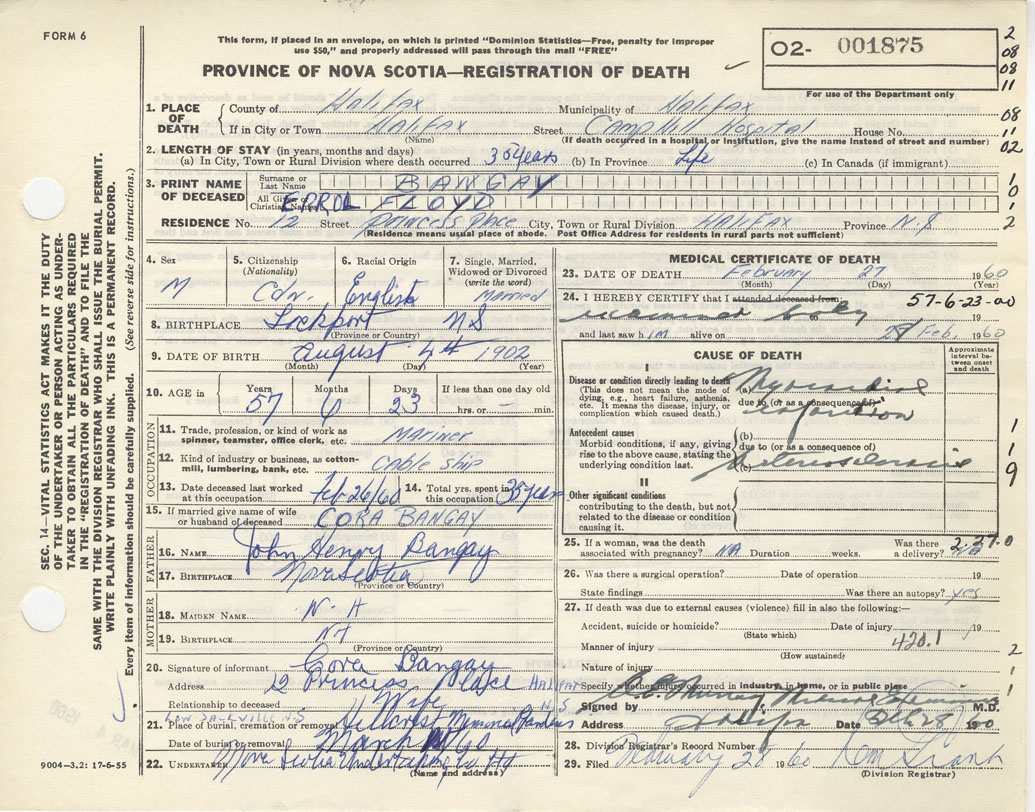 FORM 6
This form, if placed in an envelope, on which is printed "Dominion Statistics—Free, penalty for improper
use $50," and properly addressed will pass through the mail "FREE"
PROVINCE OF NOVA SCOTIA—REGISTRATION OF DEATH
O2- 001875
For use of the Department only
2
08
08
11
08
11
02
1
0
1
0
2
1. PLACE OF DEATH
County of Halifax Municipality of Halifax
If in City or Town Halifax Street Camp Hill Hospital House No.
(Name) (If death occurred in a hospital or institution, give the name instead of street and number)
2. LENGTH OF STAY (in years, months and days)
(a) In City, Town or Rural Division where death occurred 35 years (b) In Province Life (c) In Canada (if immigrant)
3. PRINT NAME OF DECEASED
Surname or Last Name BANGAY
All Given or Christian Names ERROL FLOYD
RESIDENCE No. 12 Street Princess Place City, Town or Rural Division HALIFAX Province N.S
(Residence means usual place of abode. Post Office Address for residents in rural parts not sufficient)
4. Sex M
5. Citizenship (Nationality) Cdn.
6. Racial Origin English
7. Single, Married, Widowed or Divorced (write the word) Married
8. BIRTHPLACE Lockport NS
(Province or Country)
9. DATE OF BIRTH August 4th 1902
(Month) (Day) (Year)
10. AGE in Years 57 Months 6 Days 23 If less than one day old hrs. or — min.
OCCUPATION
11. Trade, profession, or kind of work as spinner, teamster, office clerk, etc. Mariner
12. Kind of industry or business, as cotton-mill, lumbering, bank, etc. cable ship
13. Date deceased last worked at this occupation Feb 26/60
14. Total yrs. spent in this occupation 35 years
15. If married give name of wife or husband of deceased CORA BANGAY
FATHER
16. NAME John Henry Bangay
17. BIRTHPLACE Nova Scotia
(Province or Country)
MOTHER
18. MAIDEN NAME N.A
19. BIRTHPLACE NA
(Province or Country)
20. Signature of informant Cora Bangay
Address 12 Princess Place HALIFAX
N.S
Relationship to deceased Wife
LOW SACKVILLE N.S
21. Place of burial, cremation or removal Hillcrest Memorial Gardens
Date of burial or removal March 1/60
22. UNDERTAKER Nova Scotia Undertaking Co Hfx
(Name and address)
9004—3.2: 17-6-55
SEC. 14—VITAL STATISTICS ACT MAKES IT THE DUTY
OF THE UNDERTAKER OR PERSON ACTING AS UNDER-
TAKER TO OBTAIN ALL THE PARTICULARS REQUIRED
IN THE "REGISTRATION OF DEATH" AND FILE THE
SAME WITH THE DIVISION REGISTRAR WHO SHALL ISSUE THE BURIAL PERMIT.
WRITE PLAINLY WITH UNFADING INK. THIS IS A PERMANENT RECORD.
Every item of information should be carefully supplied. (See reverse side for instructions.)
MEDICAL CERTIFICATE OF DEATH
23. DATE OF DEATH February 27 1960
(Month) (Day) (Year)
24. I HEREBY CERTIFY that I attended deceased from 57-6-23-00
examined body 19
and last saw him alive on 27 Feb. 1960
CAUSE OF DEATH
Approximate interval between onset and death
I
Disease or condition directly leading to death (a) Myocardial
(This does not mean the mode of dying, e.g., heart failure, asthenia, etc. It means the disease, injury, or complication which caused death.)
due to (or as a consequence of)
infarction
Antecedent causes (b)
Morbid conditions, if any, giving rise to the above cause, stating the underlying condition last.
due to (or as a consequence of)
(c) arteriosclerosis
1
1
9
II
Other significant conditions
contributing to the death, but not related to the disease or condition causing it.
25. If a woman, was the death associated with pregnancy? NA Duration weeks. Was there a delivery? NA
2-27-0
26. Was there a surgical operation? Date of operation 19
State findings Was there an autopsy? yes
27. If death was due to external causes (violence) fill in also the following:—
Accident, suicide or homicide? Date of injury 19
(State which)
Manner of injury 420.1
(How sustained)
2
Nature of injury
1
Specify whether injury occurred in industry, in home, or in public place
1
Signed by M.D.
Address Halifax Date Feb 28 1960
28. Division Registrar's Record Number
29. Filed February 28 1960
(Division Registrar)